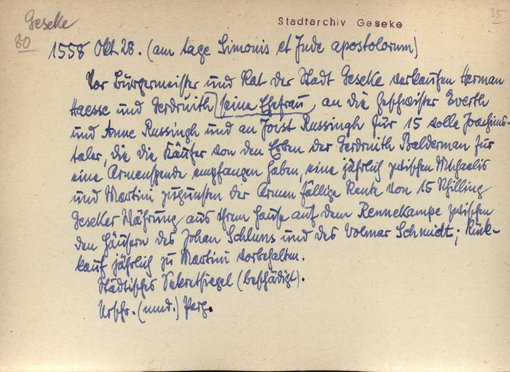 Geseke
80
Stadtarchiv Geseke
35
1558 Okt. 28. (am tage Simonis et Jude apostolorum)
Vor Bürgermeister und Rat der Stadt Geseke verkaufen Herman
Haesse und Gerdruith, seine Ehefrau, an die Geschwister Everth
und Anne Russingh und an Joist Russingh für 15 volle Joachims-
taler, die die Käufer von den Erben der Gerdruith Balderman für
eine Armenspende empfangen haben, eine jährlich zwischen Michaelis
und Martini zugunsten der Armen fällige Rente von 15 Schilling
Geseker Währung aus ihrem Hause auf dem Rennekampe zwischen
den Häusern des Johan Schluns und des Volmar Schmidt; Rück-
kauf jährlich zu Martini vorbehalten.
Städtisches Sekretsiegel (beschädigt).
Urschr. (nnd.) Perg.